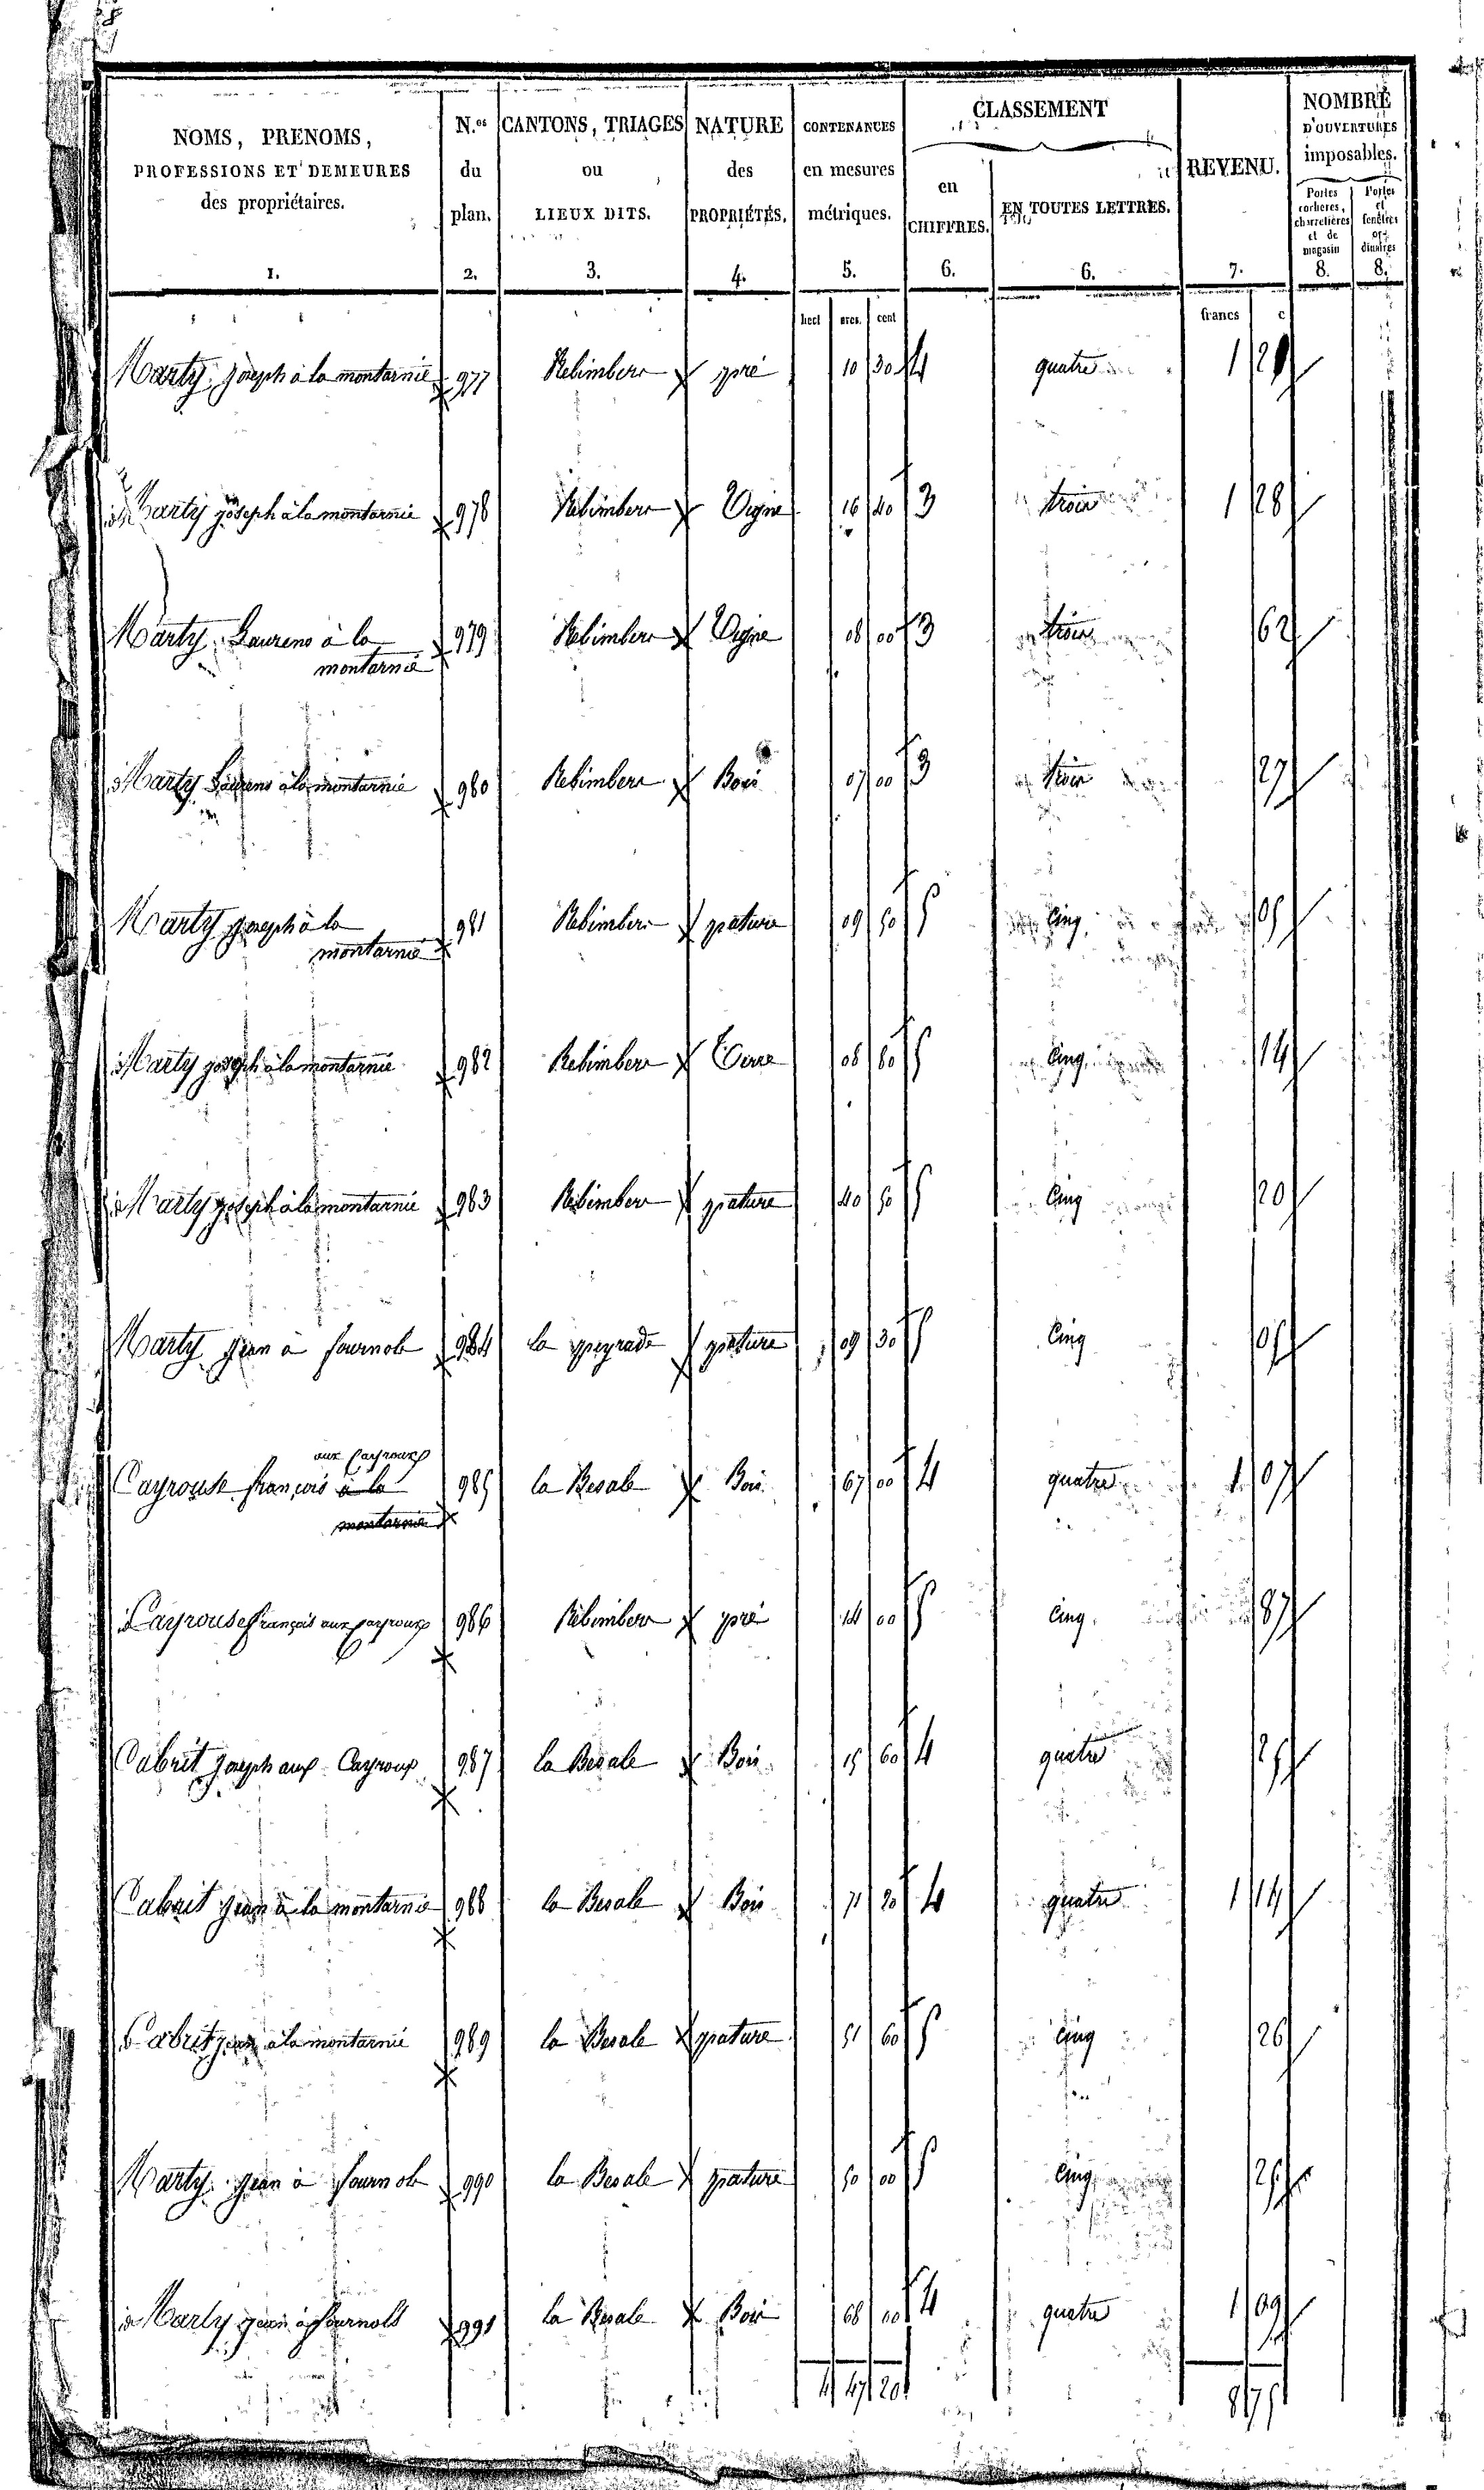 NOMS, PRENOMS,
PROFESSIONS ET DEMEURES
des propriétaires.
1.
N.os
du
plan.
2.
CANTONS, TRIAGES
ou
LIEUX DITS.
3.
NATURE
des
PROPRIÉTÉS.
4.
CONTENANCES
en mesures
métriques.
5.
CLASSEMENT
en
CHIFFRES.
6.
EN TOUTES LETTRES.
6.
REVENU.
7.
NOMBRE
D'OUVERTURES
imposables.
Portes
cocheres,
charretières
et de
magasin
8.
Portes
et
fenêtres
or-
dinaires
8.
hect ares. cent francs c
Marty joseph à la montarnie 977 Rebimbero pré 10 30 4 quatre 1 21
Marty joseph à la montarnie 978 Rebimbero Vigne 16 40 3 trois 1 28
Marty Laurens à la montarnie 979 Rebimbero Vigne 08 00 3 trois 62
Marty Laurens à la montarnie 980 Rebimbero Bois 07 00 3 trois 27
Marty joseph à la montarnie 981 Rebimbero pature 09 50 5 Cinq 05
Marty joseph à la montarnie 982 Rebimbero Terre 08 80 5 Cinq 14
Marty joseph à la montarnie 983 Rebimbero pature 40 50 5 Cinq 20
Marty jean à fournols 984 la peyrade pature 09 30 5 Cinq 05
aux Cayroux
Cayrouse françois à la montarnie 985 la Besale Bois 67 00 4 quatre 1 07
Cayrouse françois aux Cayroux 986 Rebimbero pré 14 00 5 Cinq 87
Cabrit joseph aux Cayroux 987 la Besale Bois 15 60 4 quatre 25
Cabrit jean à la montarnie 988 la Besale Bois 71 20 4 quatre 1 14
Cabrit jean à la montarnie 989 la Besale pature 51 60 5 Cinq 26
Marty jean à fournols 990 la Besale pature 50 00 5 Cinq 25
Marty jean à fournols 991 la Besale Bois 68 00 4 quatre 1 09
4 47 20 8 75